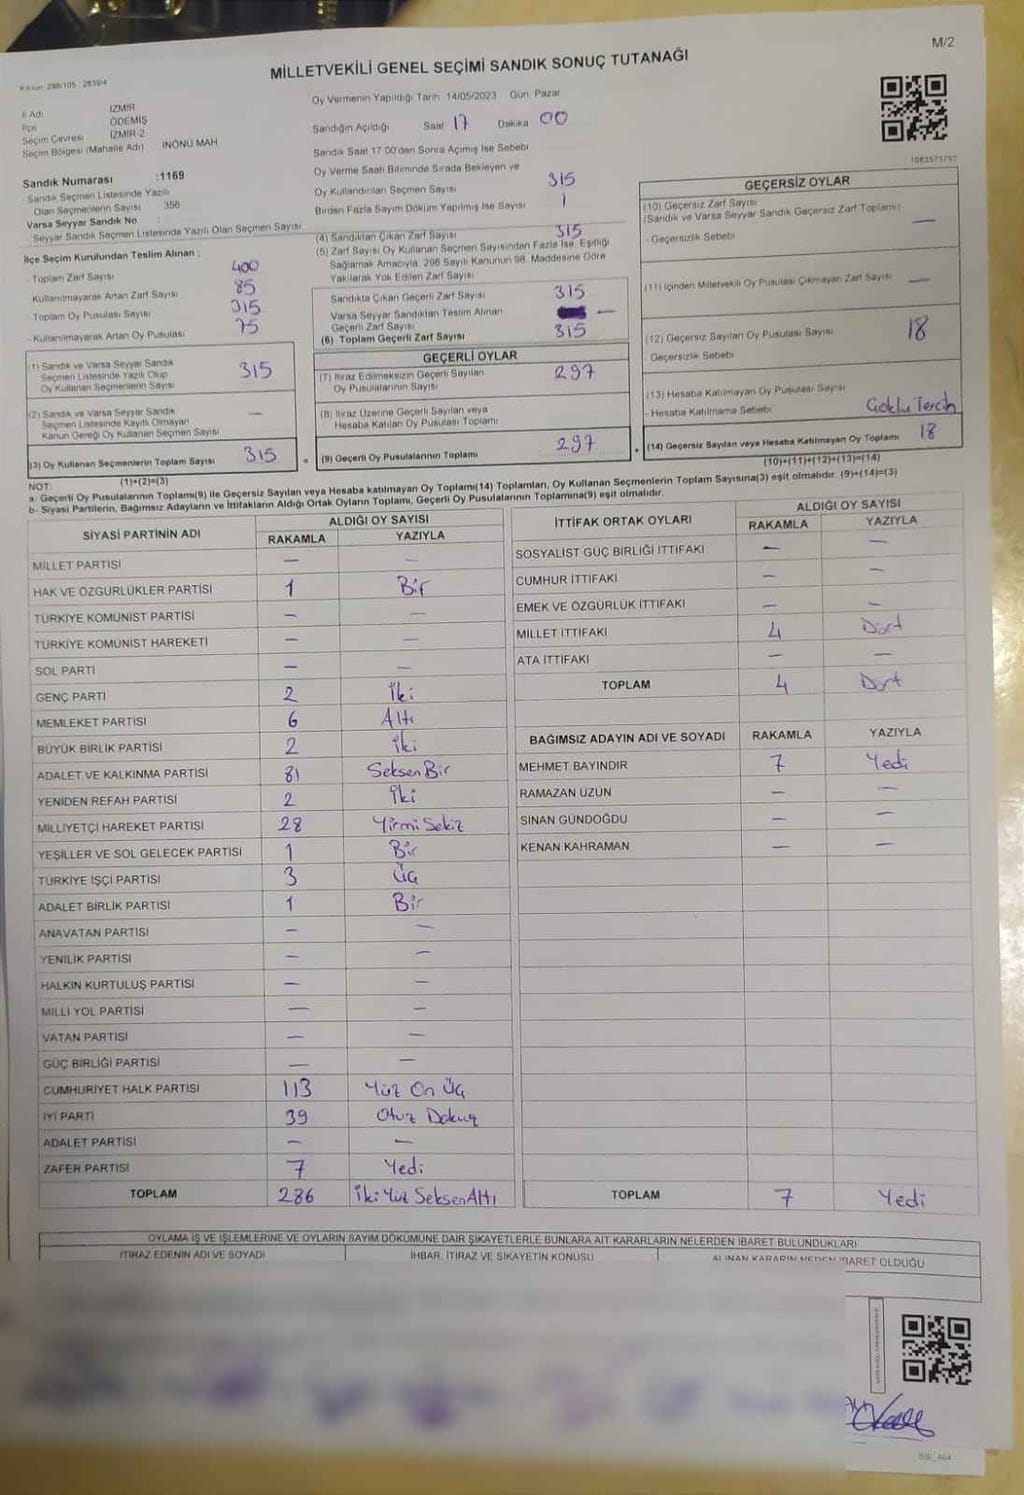 M/2
MİLLETVEKİLİ GENEL SEÇİMİ SANDIK SONUÇ TUTANAĞI
İl Adı İZMİR
İlçe ÖDEMİŞ
Seçim Çevresi İZMİR-2
Seçim Bölgesi (Mahalle Adı) İNÖNÜ MAH
Sandık Numarası :1169
Sandık Seçmen Listesinde Yazılı
Olan Seçmenlerin Sayısı : 356
Varsa Seyyar Sandık No :
Seyyar Sandık Seçmen Listesinde Yazılı Olan Seçmen Sayısı
İlçe Seçim Kurulundan Teslim Alınan :
- Toplam Zarf Sayısı 400
Kullanılmayarak Artan Zarf Sayısı 85
- Toplam Oy Pusulası Sayısı 315
- Kullanılmayarak Artan Oy Pusulası 75
(1) Sandık ve Varsa Seyyar Sandık
Seçmen Listesinde Yazılı Olup
Oy Kullanan Seçmenlerin Sayısı 315
(2) Sandık ve Varsa Seyyar Sandık
Seçmen Listesinde Kayıtlı Olmayan
Kanun Gereği Oy Kullanan Seçmen Sayısı —
(3) Oy Kullanan Seçmenlerin Toplam Sayısı 315
(1)+(2)=(3)
Oy Vermenin Yapıldığı Tarih 14/05/2023 Gün Pazar
Sandığın Açıldığı Saat 17 Dakika 00
Sandık Saat 17:00'den Sonra Açımış İse Sebebi
Oy Verme Saati Bitiminde Sırada Bekleyen ve
Oy Kullandırılan Seçmen Sayısı 315
Birden Fazla Sayım Döküm Yapılmış İse Sayısı 1
(4) Sandıktan Çıkan Zarf Sayısı 315
(5) Zarf Sayısı Oy Kullanan Seçmen Sayısından Fazla İse, Eşitliği
Sağlamak Amacıyla, 298 Sayılı Kanunun 98. Maddesine Göre
Yakılarak Yok Edilen Zarf Sayısı
Sandıkta Çıkan Geçerli Zarf Sayısı 315
Varsa Seyyar Sandıktan Teslim Alınan
Geçerli Zarf Sayısı —
(6) Toplam Geçerli Zarf Sayısı 315
GEÇERLİ OYLAR
(7) İtiraz Edilmeksizin Geçerli Sayılan
Oy Pusulalarının Sayısı 297
(8) İtiraz Üzerine Geçerli Sayılan veya
Hesaba Katılan Oy Pusulası Toplamı
(9) Geçerli Oy Pusulalarının Toplamı 297
1083575797
GEÇERSİZ OYLAR
(10) Geçersiz Zarf Sayısı
(Sandık ve Varsa Seyyar Sandık Geçersiz Zarf Toplamı) —
- Geçersizlik Sebebi
(11) İçinden Milletvekili Oy Pusulası Çıkmayan Zarf Sayısı —
(12) Geçersiz Sayılan Oy Pusulası Sayısı 18
- Geçersizlik Sebebi
(13) Hesaba Katılmayan Oy Pusulası Sayısı
- Hesaba Katılmama Sebebi Çoklu Tercih
(14) Geçersiz Sayılan veya Hesaba Katılmayan Oy Toplamı 18
(10)+(11)+(12)+(13)=(14)
NOT:
a- Geçerli Oy Pusulalarının Toplamı(9) ile Geçersiz Sayılan veya Hesaba katılmayan Oy Toplamı(14) Toplamları, Oy Kullanan Seçmenlerin Toplam Sayısına(3) eşit olmalıdır. (9)+(14)=(3)
b- Siyasi Partilerin, Bağımsız Adayların ve İttifakların Aldığı Ortak Oyların Toplamı, Geçerli Oy Pusulalarının Toplamına(9) eşit olmalıdır.
SİYASİ PARTİNİN ADI ALDIĞI OY SAYISI
RAKAMLA YAZIYLA
MİLLET PARTİSİ — —
HAK VE ÖZGÜRLÜKLER PARTİSİ 1 Bir
TÜRKİYE KOMÜNİST PARTİSİ — —
TÜRKİYE KOMÜNİST HAREKETİ — —
SOL PARTİ — —
GENÇ PARTİ 2 İki
MEMLEKET PARTİSİ 6 Altı
BÜYÜK BİRLİK PARTİSİ 2 İki
ADALET VE KALKINMA PARTİSİ 81 Seksen Bir
YENİDEN REFAH PARTİSİ 2 İki
MİLLİYETÇİ HAREKET PARTİSİ 28 Yirmi Sekiz
YEŞİLLER VE SOL GELECEK PARTİSİ 1 Bir
TÜRKİYE İŞÇİ PARTİSİ 3 Üç
ADALET BİRLİK PARTİSİ 1 Bir
ANAVATAN PARTİSİ — —
YENİLİK PARTİSİ — —
HALKIN KURTULUŞ PARTİSİ — —
MİLLİ YOL PARTİSİ — —
VATAN PARTİSİ — —
GÜÇ BİRLİĞİ PARTİSİ — —
CUMHURİYET HALK PARTİSİ 113 Yüz On Üç
İYİ PARTİ 39 Otuz Dokuz
ADALET PARTİSİ — —
ZAFER PARTİSİ 7 Yedi
TOPLAM 286 İki Yüz Seksen Altı
İTTİFAK ORTAK OYLARI ALDIĞI OY SAYISI
RAKAMLA YAZIYLA
SOSYALİST GÜÇ BİRLİĞİ İTTİFAKI — —
CUMHUR İTTİFAKI — —
EMEK VE ÖZGÜRLÜK İTTİFAKI — —
MİLLET İTTİFAKI 4 Dört
ATA İTTİFAKI — —
TOPLAM 4 Dört
BAĞIMSIZ ADAYIN ADI VE SOYADI RAKAMLA YAZIYLA
MEHMET BAYINDIR 7 Yedi
RAMAZAN UZUN — —
SİNAN GÜNDOĞDU — —
KENAN KAHRAMAN — —
TOPLAM 7 Yedi
OYLAMA İŞ VE İŞLEMLERİNE VE OYLARIN SAYIM DÖKÜMÜNE DAİR ŞİKAYETLERLE BUNLARA AİT KARARLARIN NELERDEN İBARET BULUNDUKLARI
İTİRAZ EDENİN ADI VE SOYADI İHBAR, İTİRAZ VE ŞİKAYETİN KONUSU ALINAN KARARIN NEDEN İBARET OLDUĞU